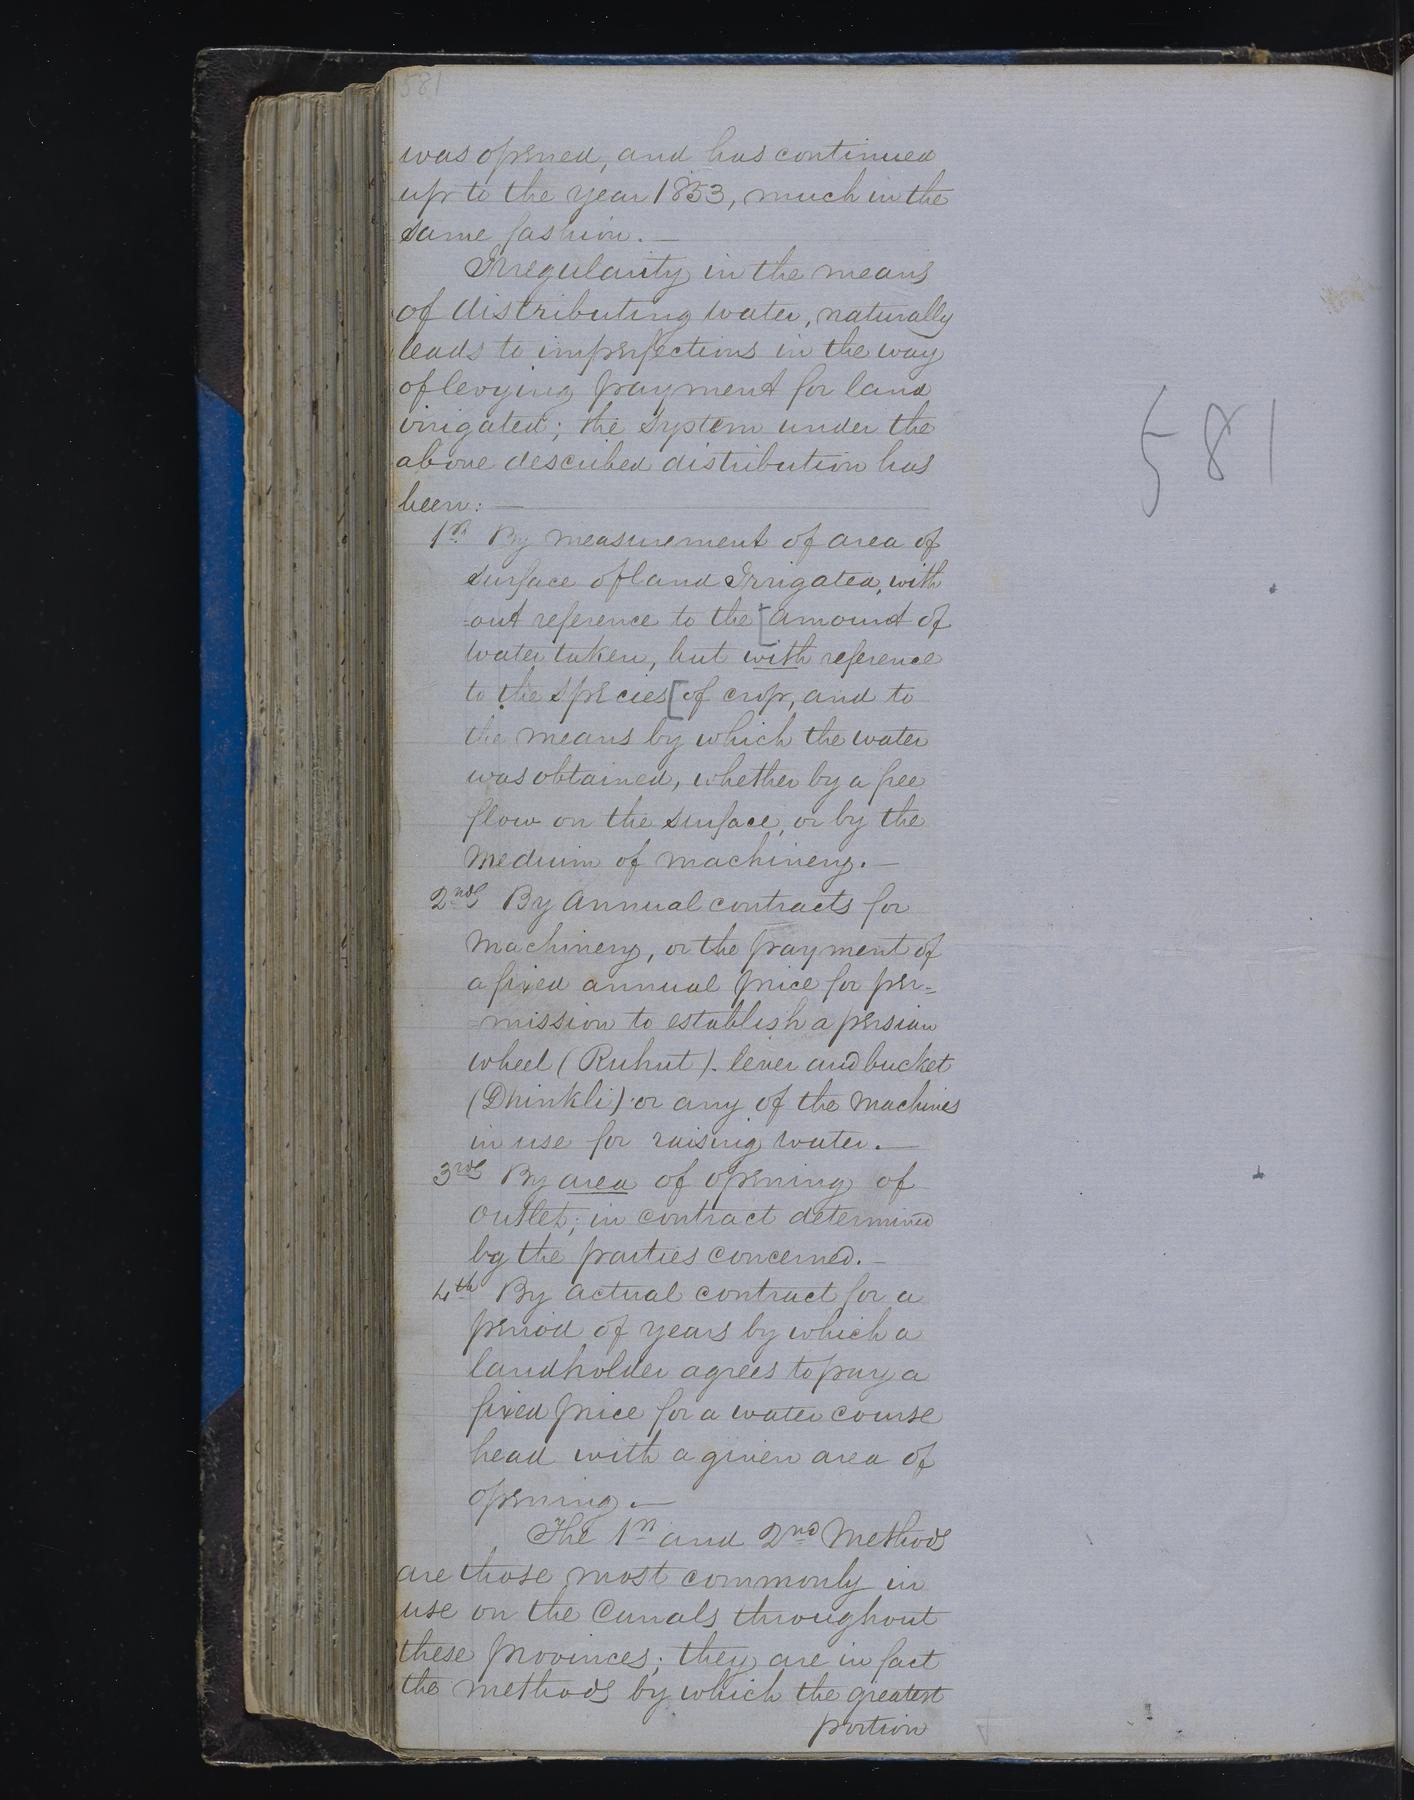 581
was opened, and has continued
up to the year 1853, much in the
same fashion. —
Irregularity in the means
of distributing water, naturally
leads to imperfections in the way
of levying payment for land
irrigated; the system under the
above described distribution has
been: —
1st By measurement of area of
surface of land Irrigated, with
-out reference to the [amount of
water taken, but with reference
to the species [of crop, and to
the means by which the water
was obtained, whether by a free
flow on the surface, or by the
medium of machinery. —
2nd By Annual contracts for
machinery, or the payment of
a fixed annual price for per-
-mission to establish a persian
wheel (Ruhut). lever and bucket
(Dhinkli) or any of the machines
in use for raising water. —
3rd By area of opening of
outlet; in contract determined
by the parties concerned. —
4th By actual contract for a
period of years by which a
landholder agrees to pay a
fixed price for a water course
head with a given area of
opening. —
The 1st and 2nd Methods
are those most commonly in
use on the Canals throughout
these provinces; they are in fact
the methods by which the greatest
portion
581